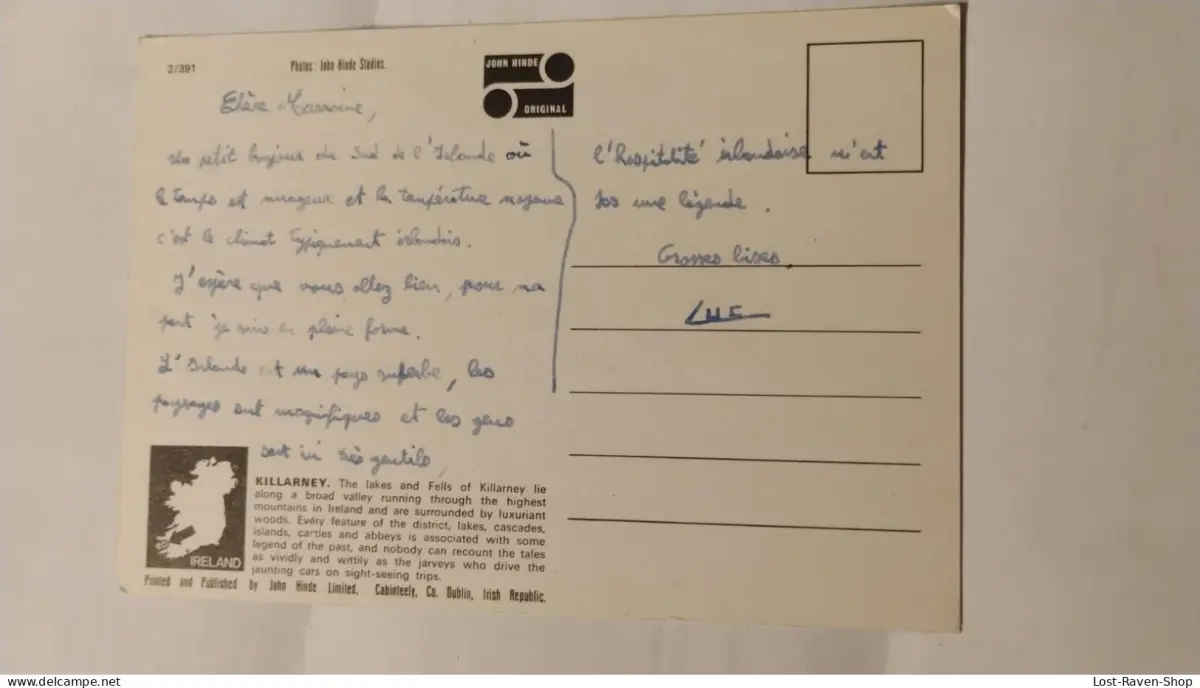 2/391
Photos: John Hinde Studios.
JOHN HINDE
ORIGINAL
Chère Marraine,
Un petit bonjour du Sud de l'Irlande où
le temps est nuageux et la température moyenne
c'est le climat typiquement irlandais.
J'espère que vous allez bien, pour ma
part je suis en pleine forme.
L'Irlande est un pays superbe, les
paysages sont magnifiques et les gens
sont ici très gentils,
l'hospitalité irlandaise n'est
pas une légende.
Grosses bises.
LUC
IRELAND
KILLARNEY. The lakes and Fells of Killarney lie
along a broad valley running through the highest
mountains in Ireland and are surrounded by luxuriant
woods. Every feature of the district, lakes, cascades,
islands, cartles and abbeys is associated with some
legend of the past, and nobody can recount the tales
as vividly and wittily as the jarveys who drive the
jaunting cars on sight-seeing trips.
Printed and Published by John Hinde Limited, Cabinteely, Co. Dublin, Irish Republic.
Lost-Raven-Shop